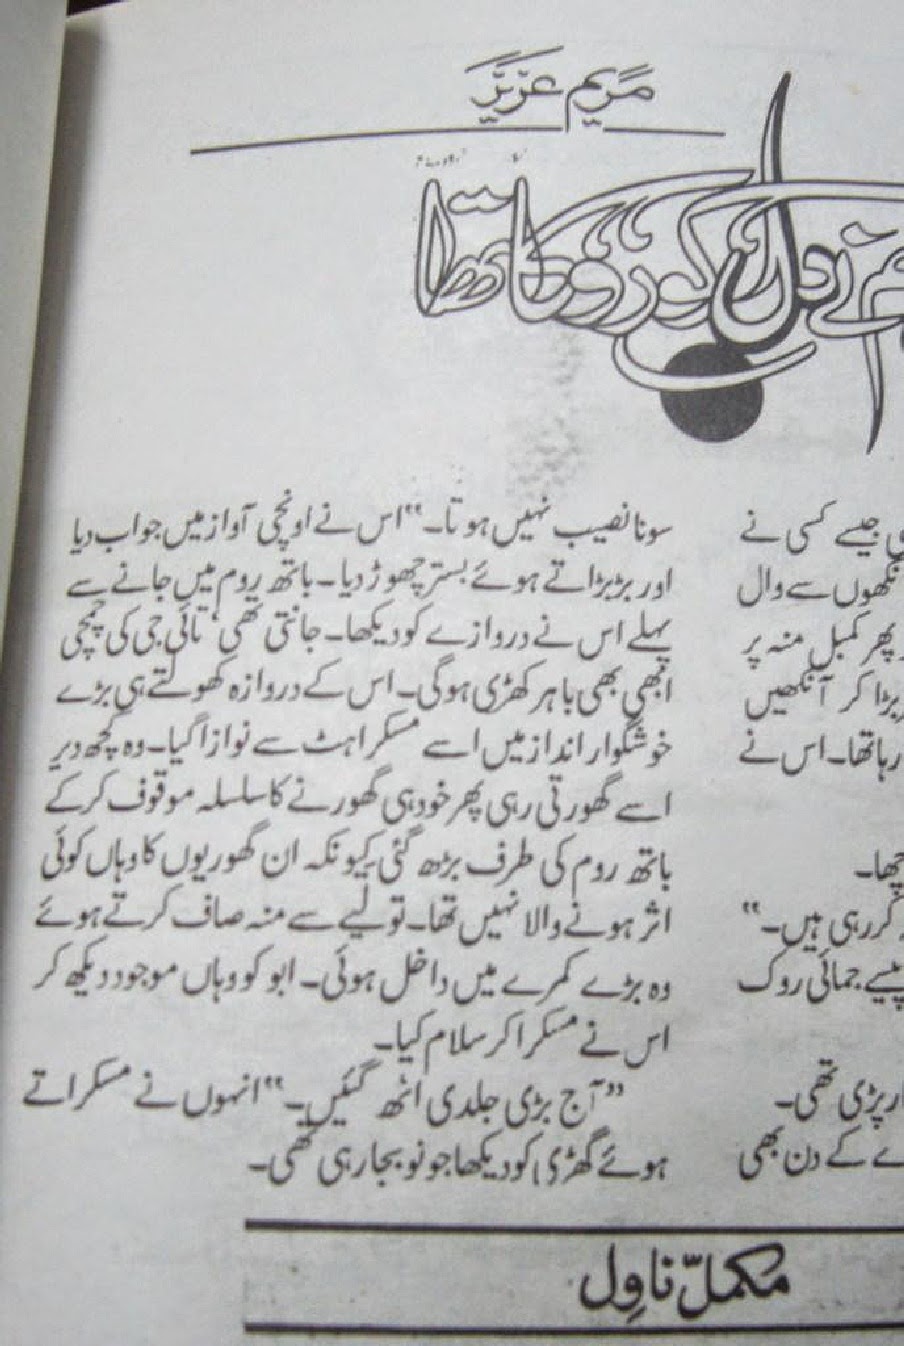 مریم عزیز
دل کو روکا تھا
جیسے کسی نے
سے وال
پھر کمبل منہ پر
بڑا کر آنکھیں
رہا تھا۔ اس نے
کر رہی ہیں۔"
جمائی روک
پڑی تھی۔
کے دن بھی
سونا نصیب نہیں ہوتا۔" اس نے اونچی آواز میں جواب دیا
اور بڑبڑاتے ہوئے بستر چھوڑ دیا۔ باتھ روم میں جانے سے
پہلے اس نے دروازے کو دیکھا۔ جانتی تھی' تائی جی کی چمچی
ابھی بھی باہر کھڑی ہوگی۔ اس کے دروازہ کھولتے ہی بڑے
خوشگوار انداز میں اسے مسکراہٹ سے نوازا گیا۔ وہ کچھ دیر
اسے گھورتی رہی پھر خود ہی گھورنے کا سلسلہ موقوف کرکے
باتھ روم کی طرف بڑھ گئی کیونکہ ان گھوریوں کا وہاں کوئی
اثر ہونے والا نہیں تھا۔ تولیے سے منہ صاف کرتے ہوئے
وہ بڑے کمرے میں داخل ہوئی۔ ابو کو وہاں موجود دیکھ کر
اس نے مسکرا کر سلام کیا۔
"آج بڑی جلدی اٹھ گئیں۔" انہوں نے مسکراتے
ہوئے گھڑی کو دیکھا جو نو بجا رہی تھی۔
مکمل ناول